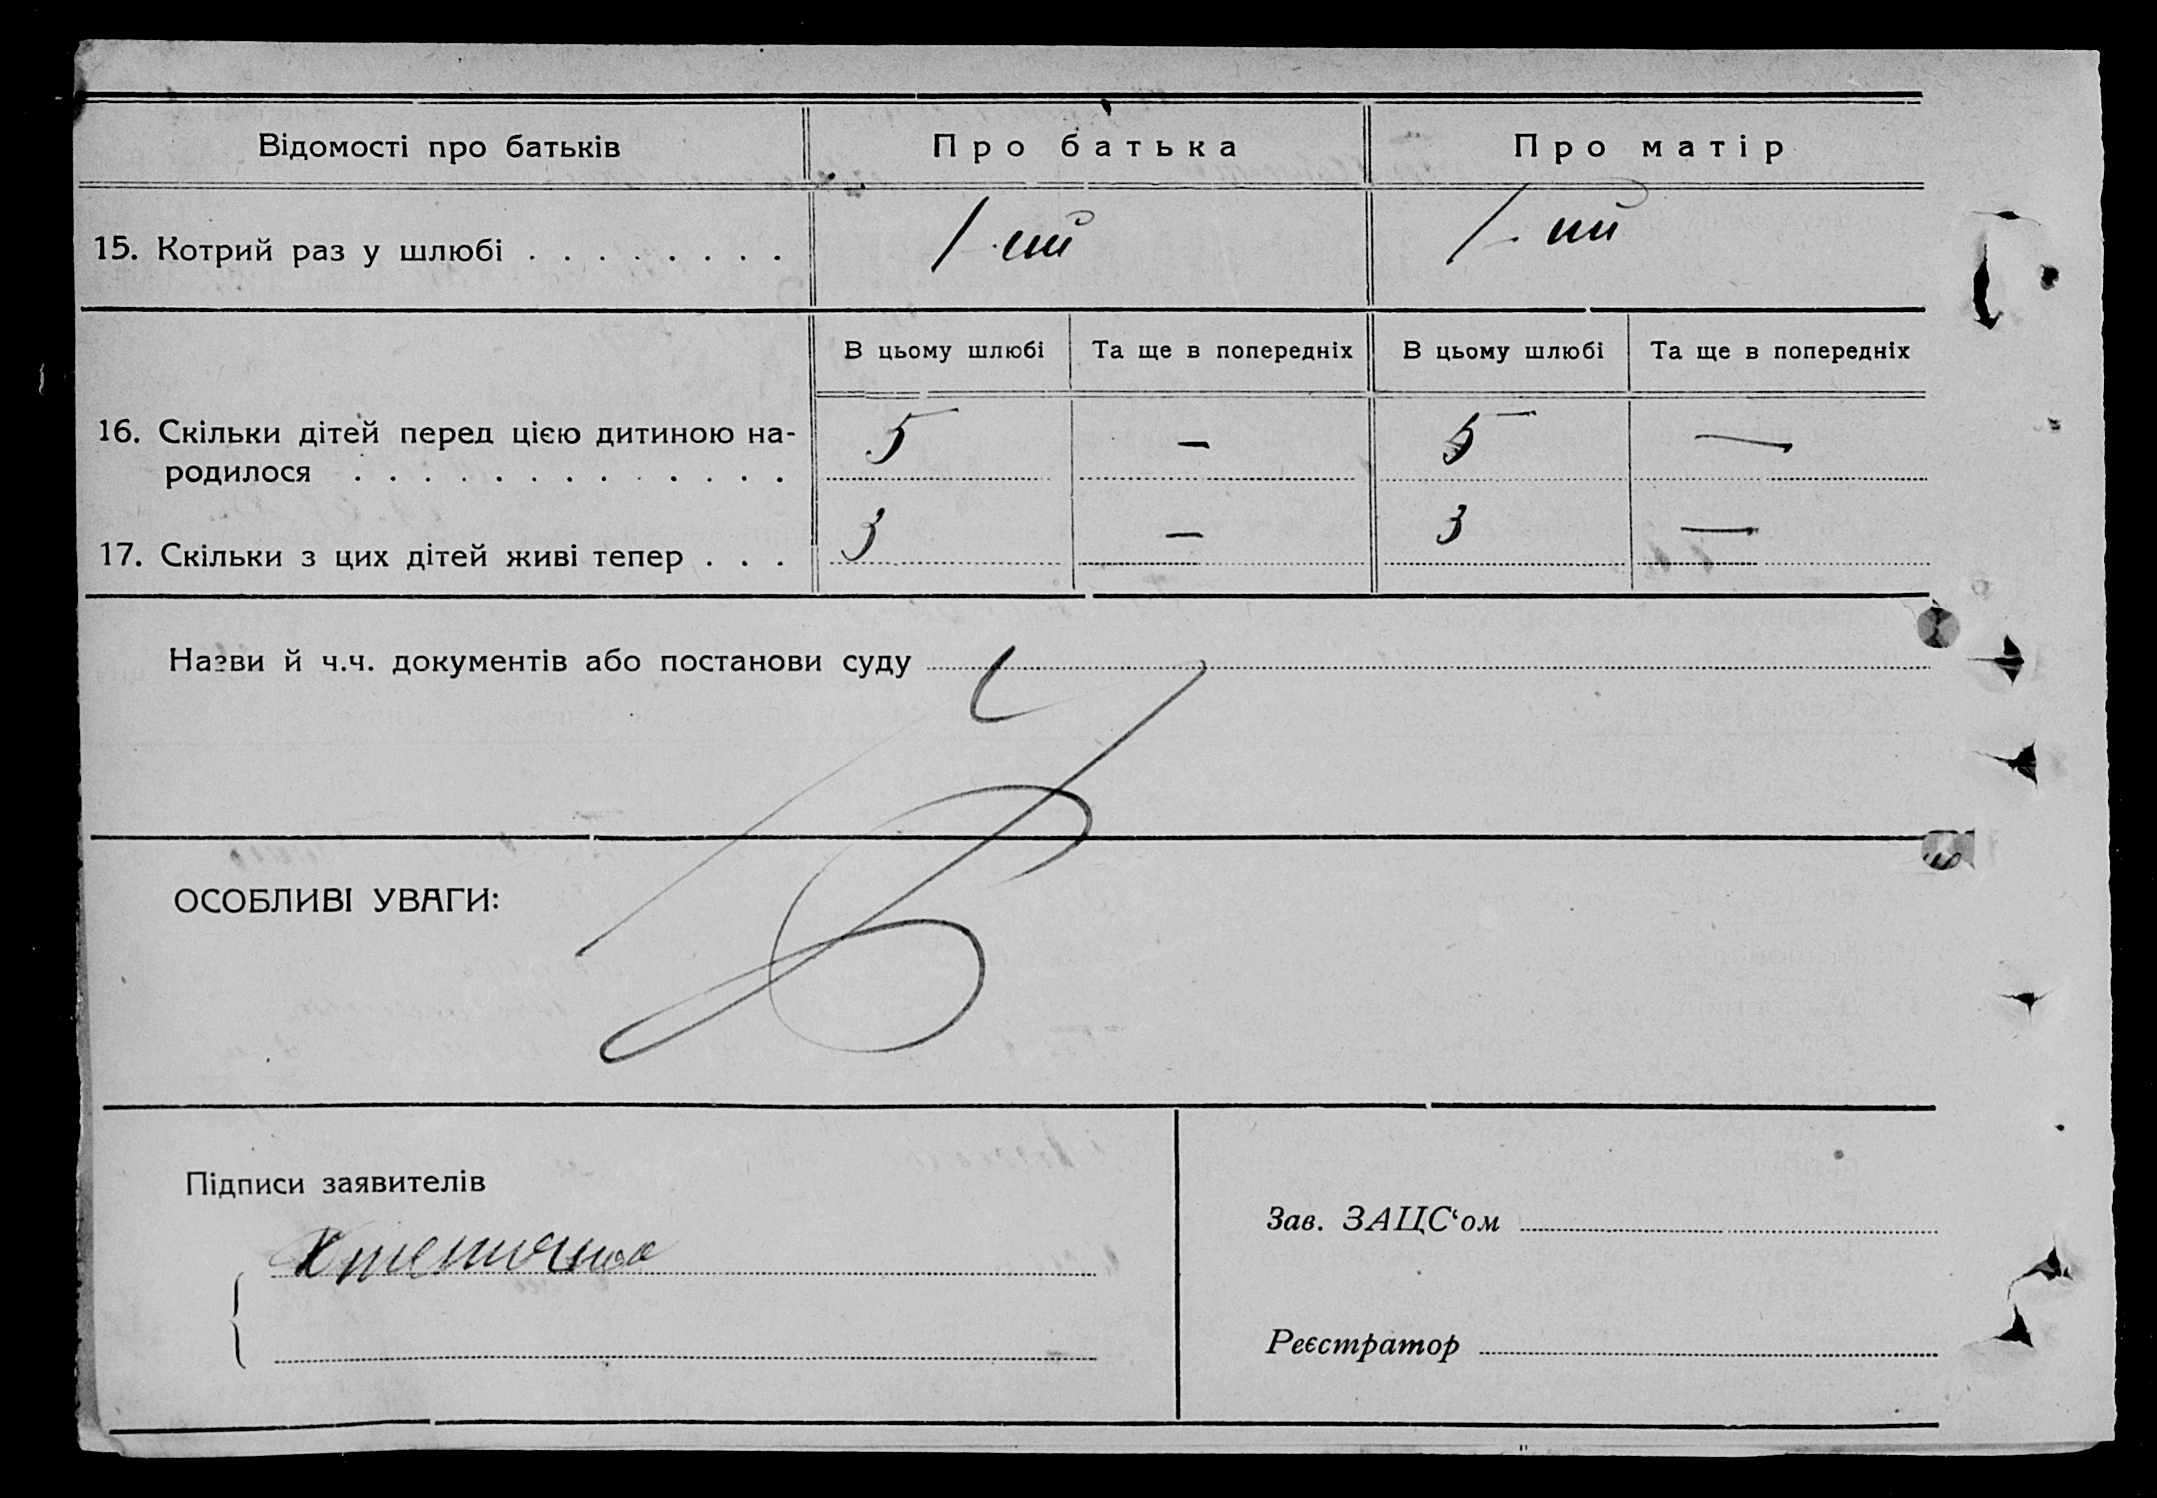 Відомості про батьків
Про батька
Про матір
15. Котрий раз у шлюбі . . . . . . . .
1-ий
1-ий
В цьому шлюбі
Та ще в попередніх
В цьому шлюбі
Та ще в попередніх
16. Скільки дітей перед цією дитиною на-
родилося . . . . . . . . . . . . .
5
—
5
—
17. Скільки з цих дітей живі тепер . . .
3
—
3
—
Назви й ч.ч. документів або постанови суду
ОСОБЛИВІ УВАГИ:
Підписи заявителів
Зав. ЗАЦС‘ом
Реєстратор